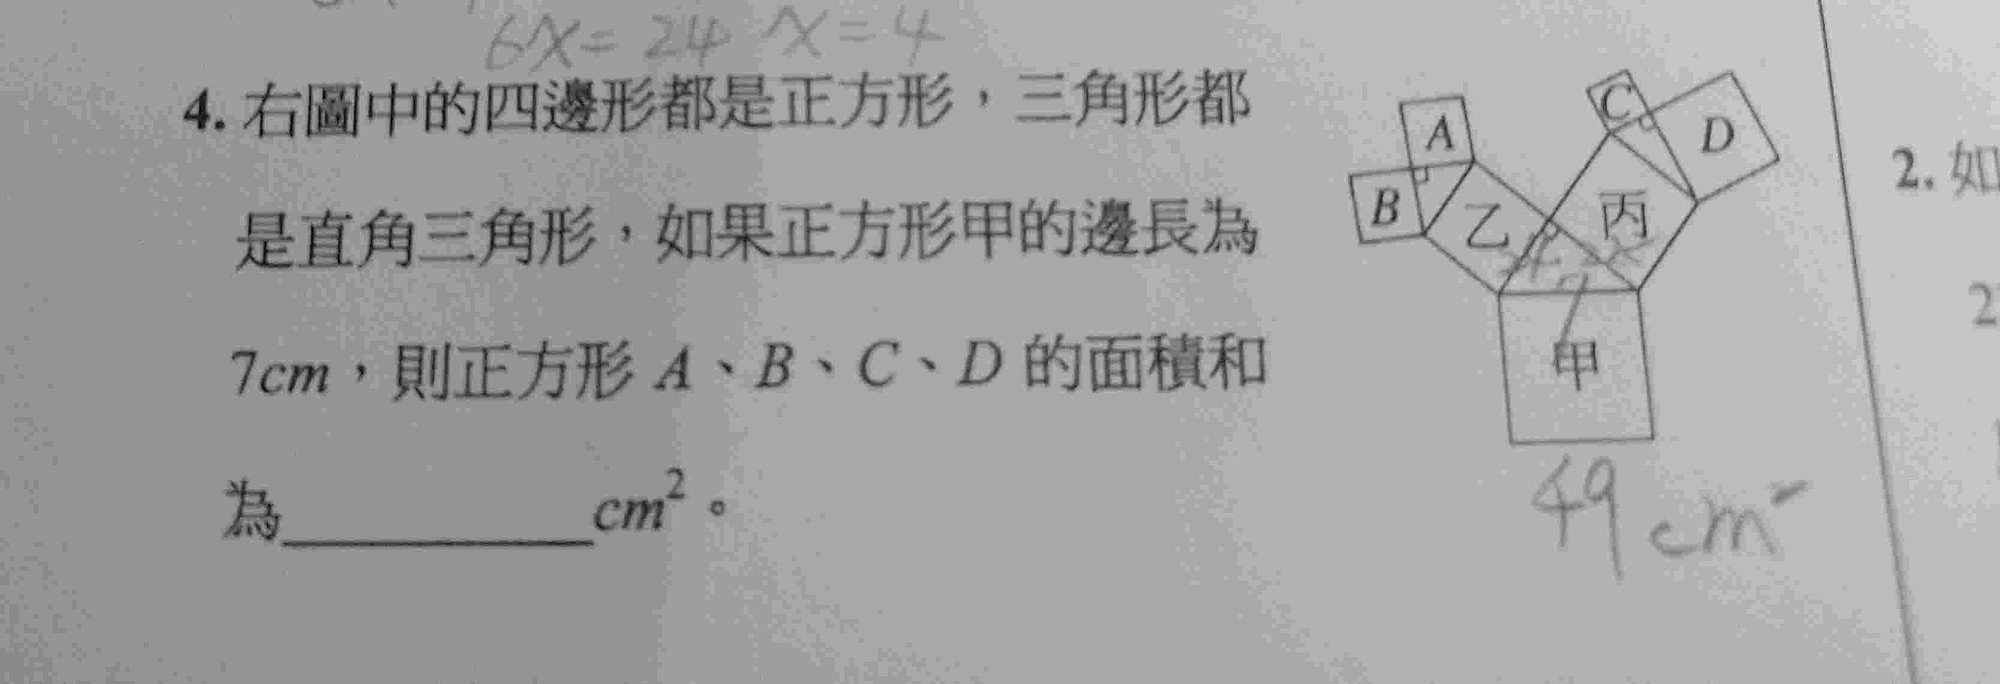 6x=24 x=4
4. 右圖中的四邊形都是正方形，三角形都
是直角三角形，如果正方形甲的邊長為
7cm，則正方形 A、B、C、D 的面積和
為__________cm²。
A
B
C
D
乙
丙
甲
49 cm²
2. 如
2